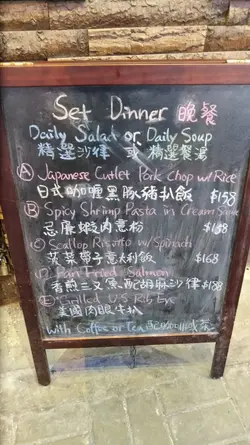 Set Dinner 晚餐
Daily Salad or Daily Soup
精選沙律 或 精選餐湯
A Japanese Cutlet Pork Chop w/ Rice
日式咖喱黑豚豬扒飯 $158
B Spicy Shrimp Pasta in Cream Sauce
忌廉蝦肉意粉
C Scallop Risotto w/ Spinach
菠菜帶子意大利飯 $168
D Pan Fried Salmon
香煎三文魚配胡麻沙律 $188
E Grilled U.S Rib Eye
美國肉眼牛扒
with Coffee or Tea 配 或茶